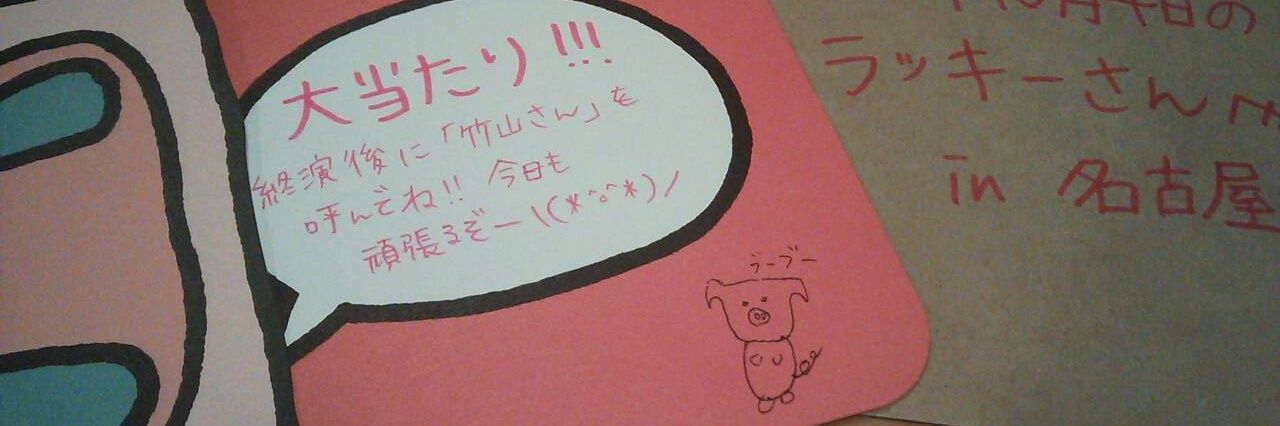 大当たり!!!
終演後に「竹山さん」を
呼んでね!! 今日も
頑張るぞー\(*^o^*)/
ブーブー
月4日の
ラッキーさん
in 名古屋